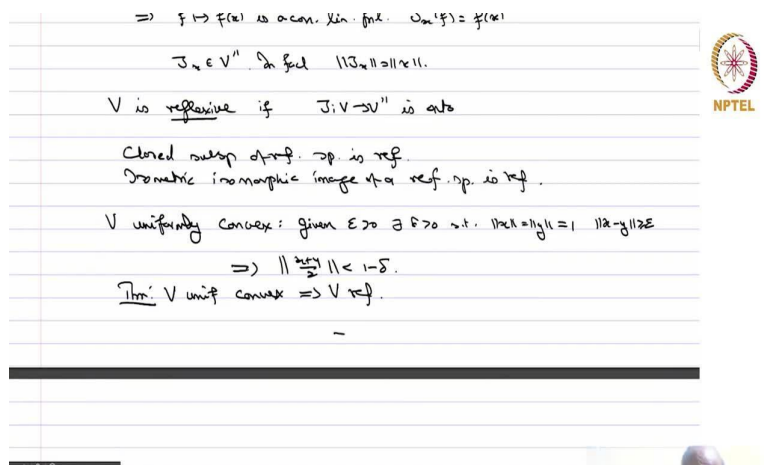 => f ↦ f(x) is a con. lin. fnl. J_x(f) = f(x)
J_x ∈ V''. In fact ||J_x|| = ||x||.
V is reflexive if J: V → V'' is onto
NPTEL
Closed subsp of ref. sp. is ref.
Isometric isomorphic image of a ref. sp. is ref.
V uniformly convex: given ε>0 ∃ δ>0 s.t. ||x|| = ||y|| = 1 ||x-y|| ≥ ε
=> ||x+y/2|| < 1-δ.
Thm: V unif convex => V ref.